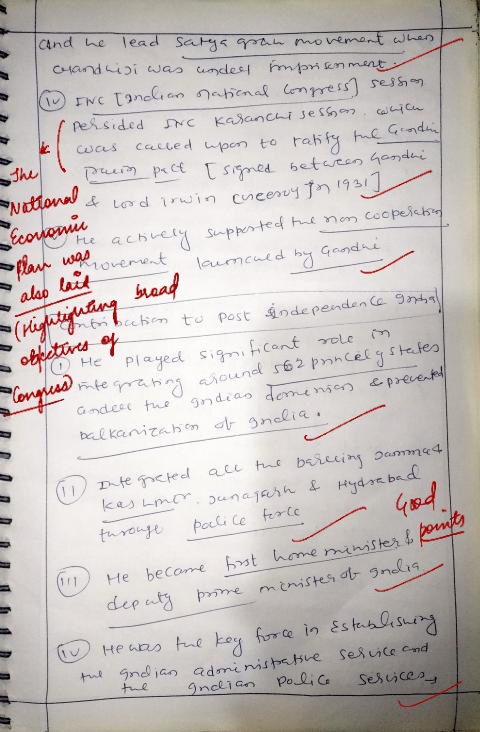 and he lead satyagrah movement when
Gandhiji was under imprisonment.
(iv) INC [Indian National Congress] session
Persided INC Karanchi session. which
was called upon to ratify the Gandhi
Irwin pact [signed between Gandhi
& Lord irwin (viceroy) in 1931]
The
National
Economic
Plan was
also laid
(Highlighting broad
objectives of
Congress)
He actively supported the non cooperation
movement launched by Gandhi
Contribution to post independence India
(i) He played significant role in
integrating around 562 princely states
under the Indian dominion & prevented
balkanization of India.
(ii) Integrated all the Jammu &
Kashmir. Junagarh & Hydrabad
through police force
Good
points
(iii) He became first home minister &
deputy prime minister of India.
(iv) He was the key force in Establishing
the Indian administrative service and
the Indian Police services